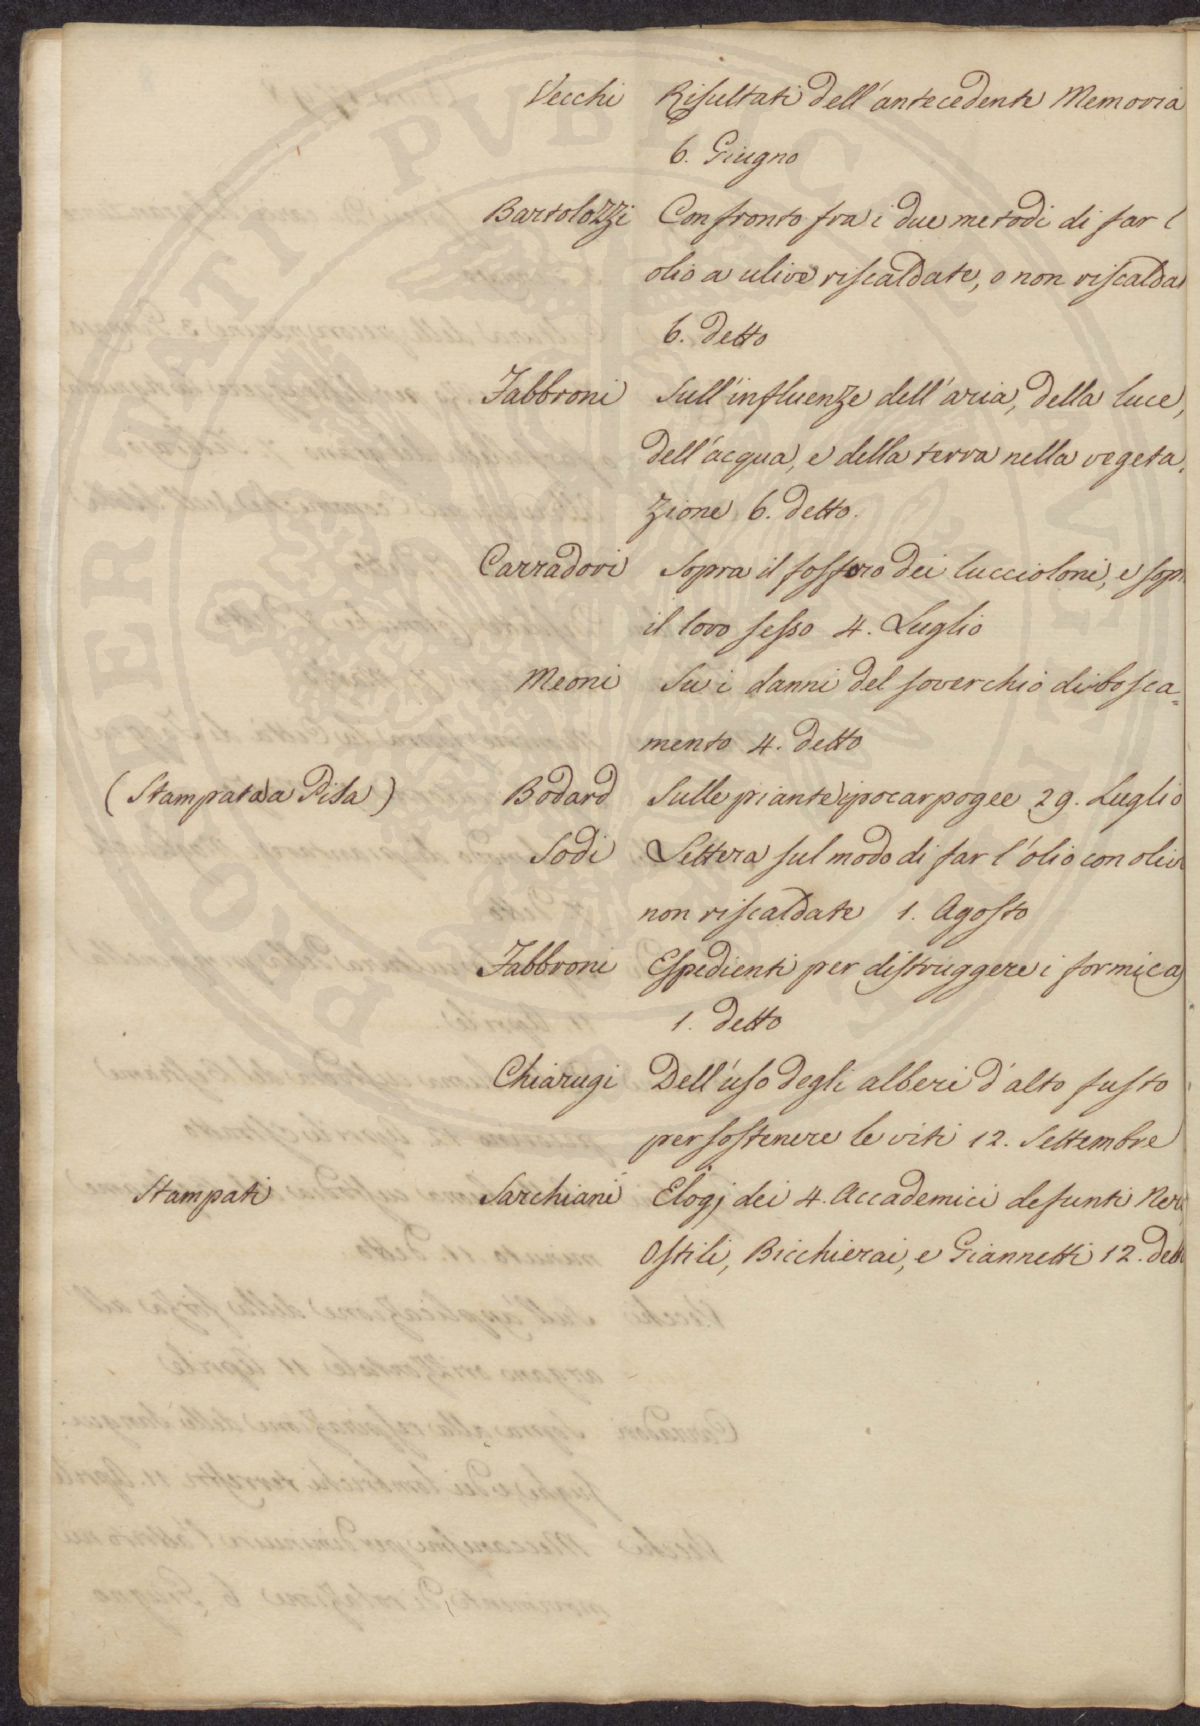 Vecchi Risultati dell'antecedente Memoria
6. Giugno
Bartolozzi Confronto fra i due metodi di far l
olio a ulive riscaldate, o non riscalda
6. detto
Fabbroni Sull'influenze dell'aria, della luce,
dell'acqua, e della terra nella vegeta
zione 6. detto.
Carradori Sopra il fosforo dei luccioloni, e sop
il loro sesso 4. Luglio
Meoni Su i danni del soverchio disbosca=
mento 4. detto
(Stampata a Pisa) Bodard Sulle piante ipocarpogee 29. Luglio
Sodi Lettera sul modo di far l'olio con oliv
non riscaldate 1. Agosto
Fabbroni Espedienti per distruggere i formica
1. detto
Chiarugi Dell'uso degli alberi d'alto fusto
per sostenere le viti 12. Settembre
Stampati Sarchiani Elogj dei 4. Accademici defunti Neri
Ostili, Bicchierai, e Giannetti 12. dett